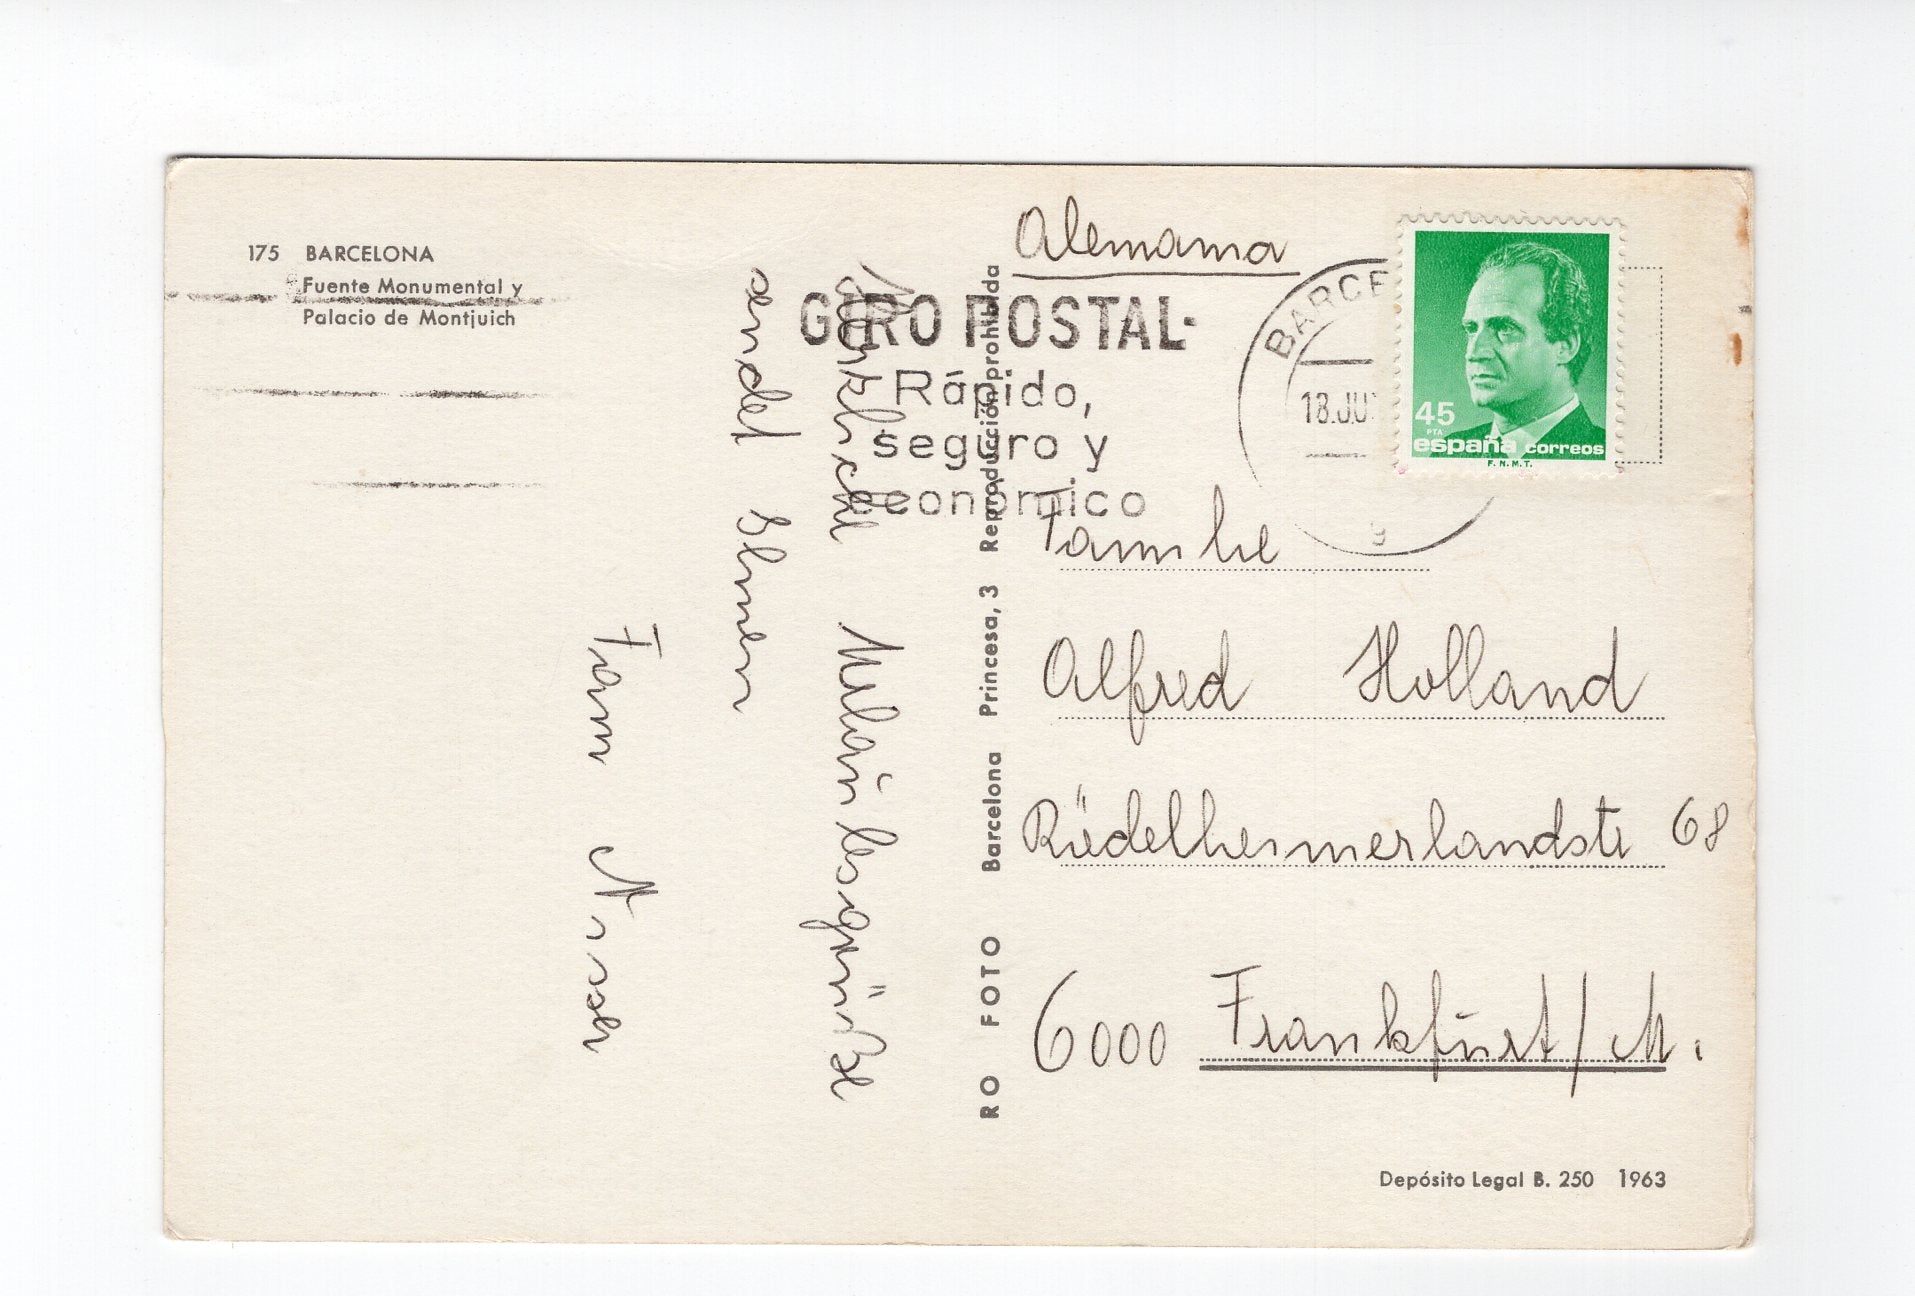 175 BARCELONA
Fuente Monumental y
Palacio de Montjuich
Herzliche Urlaubsgrüße
sendet Ihnen
Fam
RO FOTO Barcelona Princesa, 3 Reproducción prohibida
GIRO POSTAL
Rápido,
seguro y
económico
Alemania
BARCE
18.JU
9
45
PTA
españa correos
F.N.M.T.
Familie
Alfred Holland
Rüdelheimerlandstr 68
6000 Frankfurt/M.
Depósito Legal B. 250 1963